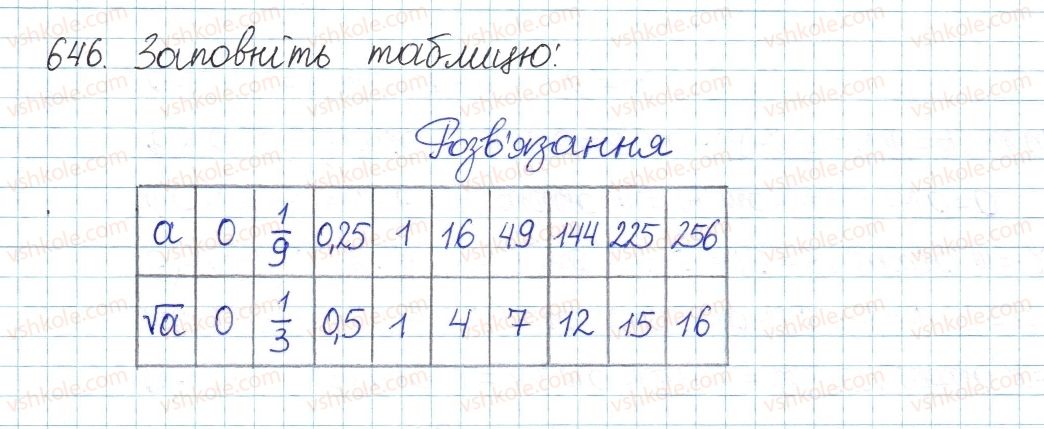 646. Заповніть таблицю:
Розв'язання
a 0 1/9 0,25 1 16 49 144 225 256
√a 0 1/3 0,5 1 4 7 12 15 16
vshkole.com